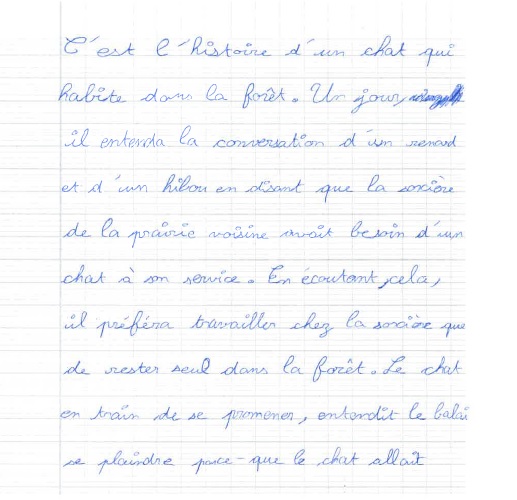 C'est l'histoire d'un chat qui
habite dans la forêt. Un jour,
il entenda la conversation d'un renard
et d'un hibou en disant que la sorcière
de la prairie voisine avait besoin d'un
chat à son service. En écoutant cela,
il préféra travailler chez la sorcière que
de rester seul dans la forêt. Le chat
en train de se promener, entendit le balai
se plaindre parce-que le chat allait